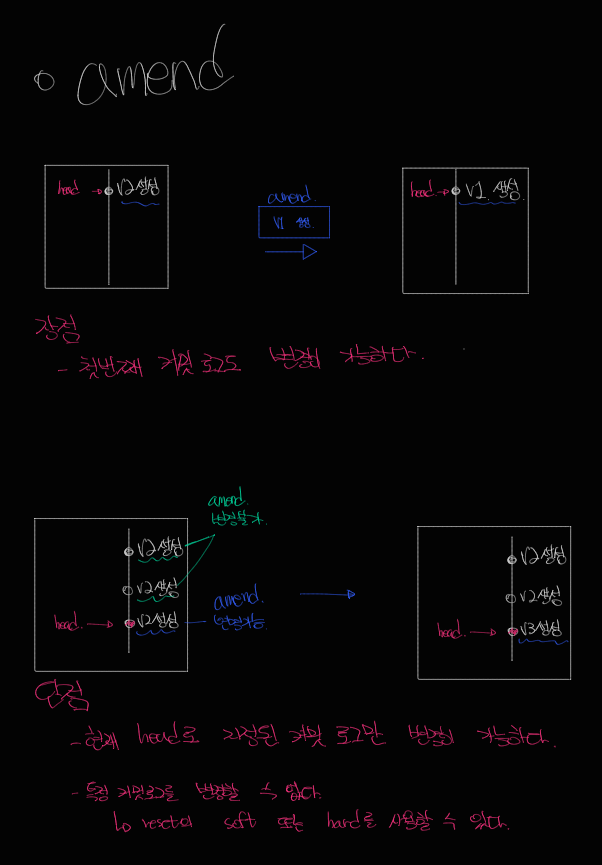 amend
head
V2 생성
amend.
V1 생성.
head
V1 생성.
장점
- 첫번째 커밋 로그도 변경이 가능하다.
amend.
변경불가.
V2생성
V2생성
head.
V2생성
amend.
변경가능
V2생성
V2생성
head.
V3생성
단점
- 현재 head로 지정된 커밋 로그만 변경이 가능하다.
- 특정 커밋로그를 변경할 수 없다.
reset의 soft 또는 hard를 사용할 수 있다.